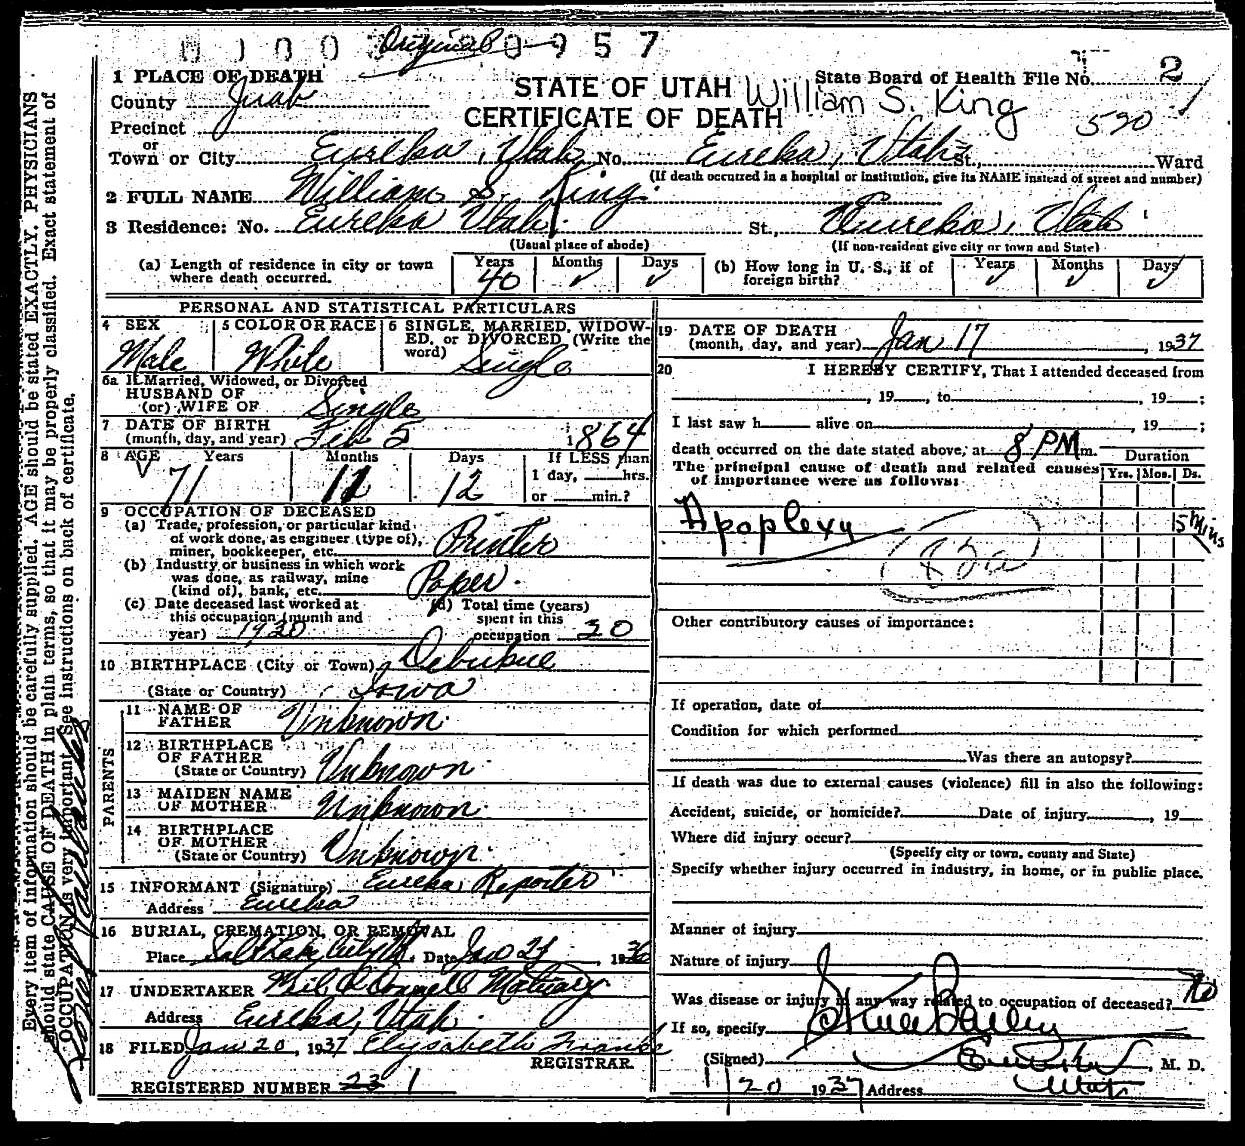 Original
0 9 5 7
1 PLACE OF DEATH
STATE OF UTAH
State Board of Health File No. 2
County Juab
William S. King
CERTIFICATE OF DEATH
590
Precinct
or
Town or City Eureka, Utah, No. Eureka, Utah St., Ward
(If death occurred in a hospital or institution, give its NAME instead of street and number)
2 FULL NAME William S. King
3 Residence: No. Eureka Utah St., Eureka, Utah
(Usual place of abode) (If non-resident give city or town and State)
(a) Length of residence in city or town where death occurred. Years 40 Months ✓ Days ✓
(b) How long in U. S., if of foreign birth? Years ✓ Months ✓ Days ✓
PERSONAL AND STATISTICAL PARTICULARS
4 SEX Male
5 COLOR OR RACE White
6 SINGLE, MARRIED, WIDOW-
ED, or DIVORCED (Write the
word) Single
6a If Married, Widowed, or Divorced
HUSBAND OF
(or) WIFE OF Single
7 DATE OF BIRTH
(month, day, and year) Feb 5 1864
8 AGE Years Months Days If LESS than
71 11 12 1 day, hrs.
or min.?
9 OCCUPATION OF DECEASED
(a) Trade, profession, or particular kind
of work done, as engineer (type of),
miner, bookkeeper, etc. Printer
(b) Industry or business in which work
was done, as railway, mine
(kind of), bank, etc. Paper.
(c) Date deceased last worked at
this occupation (month and
year) 1930
(d) Total time (years)
spent in this
occupation 30
10 BIRTHPLACE (City or Town) Debukue
(State or Country) Iowa
PARENTS
11 NAME OF
FATHER Unknown
12 BIRTHPLACE
OF FATHER
(State or Country) Unknown
13 MAIDEN NAME
OF MOTHER Unknown
14 BIRTHPLACE
OF MOTHER
(State or Country) Unknown
15 INFORMANT (Signature) Eureka Reporter
Address Eureka
16 BURIAL, CREMATION, OR REMOVAL
Place Salt Lake City Ut. Date Jan 21, 1936
17 UNDERTAKER O'Connell Mortuary
Address Eureka, Utah
18 FILED Jan 20, 1937 Elysabeth
REGISTRAR
REGISTERED NUMBER 23 1
19 DATE OF DEATH
(month, day, and year) Jan 17, 1937
20 I HEREBY CERTIFY, That I attended deceased from
, 19 , to , 19 ;
I last saw h alive on , 19 ;
death occurred on the date stated above, at 8 PM m.
Duration
The principal cause of death and related causes
of importance were as follows:
Yrs. Mos. Ds.
Apoplexy 5 mins
82a
Other contributory causes of importance:
If operation, date of
Condition for which performed
Was there an autopsy?
If death was due to external causes (violence) fill in also the following:
Accident, suicide, or homicide? Date of injury , 19
Where did injury occur?
(Specify city or town, county and State)
Specify whether injury occurred in industry, in home, or in public place.
Manner of injury
Nature of injury
Was disease or injury in any way related to occupation of deceased? No
If so, specify
(Signed) Bailey, M. D.
1/20 1937 Address Eureka Utah
Every item of information should be carefully supplied. AGE should be stated EXACTLY. PHYSICIANS
should state CAUSE OF DEATH in plain terms, so that it may be properly classified. Exact statement of
OCCUPATION is very important. See instructions on back of certificate.